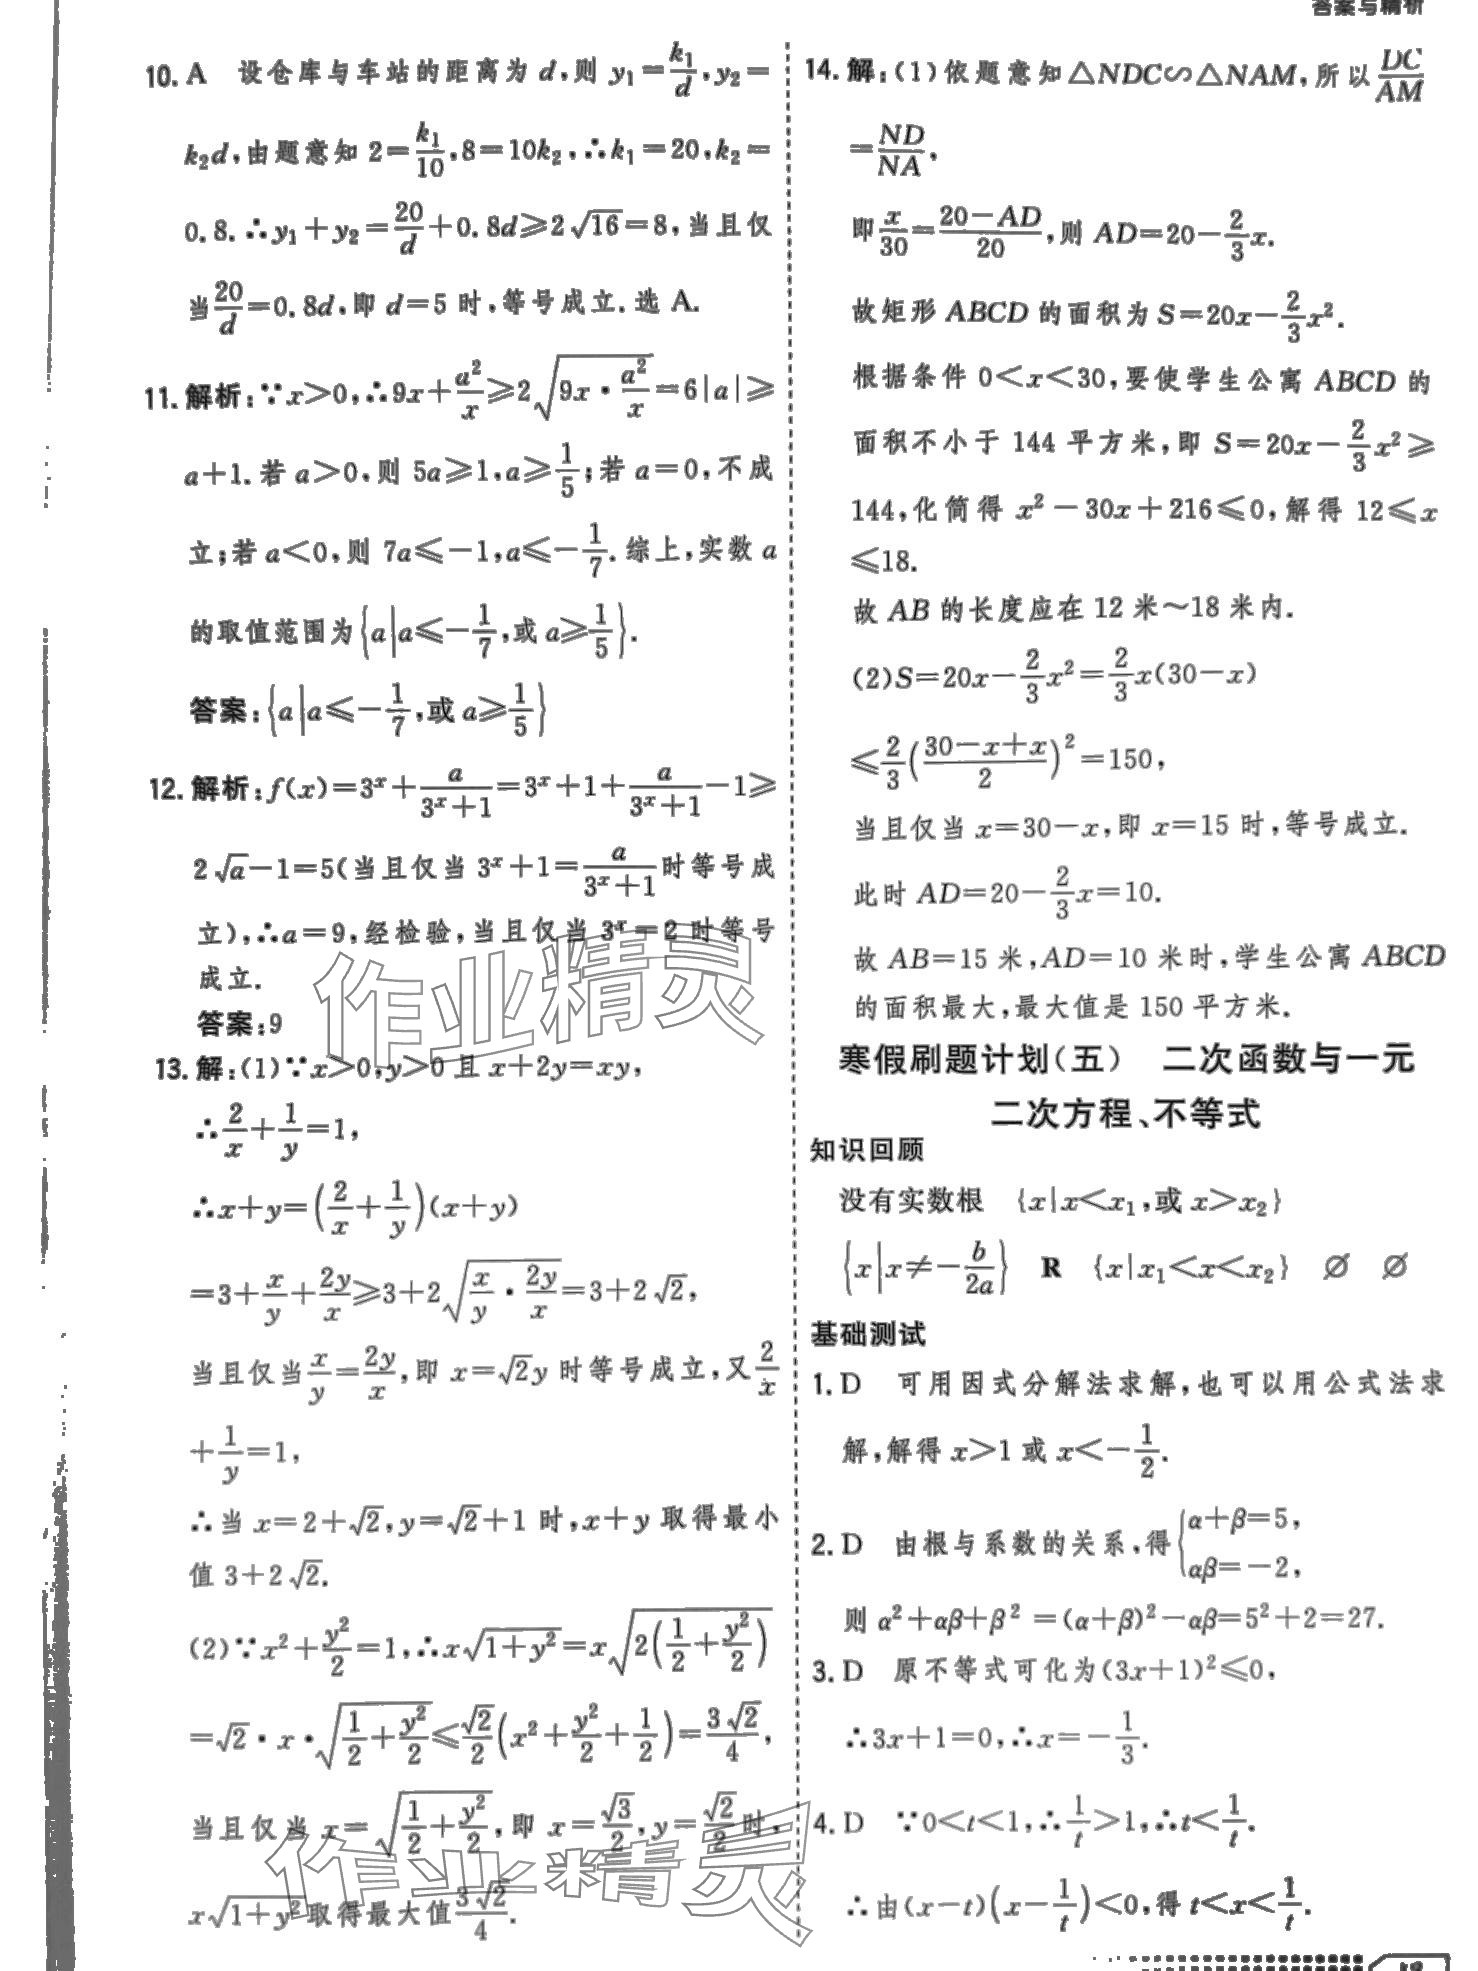 答案与精析
10. A 设仓库与车站的距离为 d,则 y₁=k₁/d,y₂=
k₂d,由题意知 2=k₁/10,8=10k₂,∴k₁=20,k₂=
0.8.∴y₁+y₂=20/d+0.8d≥2√16=8,当且仅
当20/d=0.8d,即 d=5 时,等号成立.选 A.
11. 解析:∵x>0,∴9x+a²/x≥2√(9x·a²/x)=6|a|≥
a+1.若 a>0,则 5a≥1,a≥1/5;若 a=0,不成
立;若 a<0,则 7a≤-1,a≤-1/7.综上,实数 a
的取值范围为{a|a≤-1/7,或 a≥1/5}.
答案:{a|a≤-1/7,或 a≥1/5}
12. 解析:f(x)=3ˣ+a/(3ˣ+1)=3ˣ+1+a/(3ˣ+1)-1≥
2√a-1=5(当且仅当 3ˣ+1=a/(3ˣ+1)时等号成
立),∴a=9,经检验,当且仅当 3ˣ=2 时等号
成立.
答案:9
13. 解:(1)∵x>0,y>0 且 x+2y=xy,
∴2/x+1/y=1,
∴x+y=(2/x+1/y)(x+y)
=3+x/y+2y/x≥3+2√(x/y·2y/x)=3+2√2,
当且仅当x/y=2y/x,即 x=√2y 时等号成立,又2/x
+1/y=1,
∴当 x=2+√2,y=√2+1 时,x+y 取得最小
值 3+2√2.
(2)∵x²+y²/2=1,∴x√(1+y²)=x√(2(1/2+y²/2))
=√2·x·√(1/2+y²/2)≤√2/2(x²+y²/2+1/2)=3√2/4,
当且仅当 x=√(1/2+y²/2),即 x=√3/2,y=√2/2时,
x√(1+y²)取得最大值3√2/4.
14. 解:(1)依题意知△NDC∽△NAM,所以DC/AM
=ND/NA,
即x/30=(20-AD)/20,则 AD=20-2/3x.
故矩形 ABCD 的面积为 S=20x-2/3x².
根据条件 0<x<30,要使学生公寓 ABCD 的
面积不小于 144 平方米,即 S=20x-2/3x²≥
144,化简得 x²-30x+216≤0,解得 12≤x
≤18.
故 AB 的长度应在 12 米～18 米内.
(2)S=20x-2/3x²=2/3x(30-x)
≤2/3((30-x+x)/2)²=150,
当且仅当 x=30-x,即 x=15 时,等号成立.
此时 AD=20-2/3x=10.
故 AB=15 米,AD=10 米时,学生公寓 ABCD
的面积最大,最大值是 150 平方米.
寒假刷题计划(五) 二次函数与一元
二次方程、不等式
知识回顾
没有实数根 {x|x<x₁,或 x>x₂}
{x|x≠-b/2a} R {x|x₁<x<x₂} ∅ ∅
基础测试
1. D 可用因式分解法求解,也可以用公式法求
解,解得 x>1 或 x<-1/2.
2. D 由根与系数的关系,得{α+β=5,
αβ=-2,
则 α²+αβ+β²=(α+β)²-αβ=5²+2=27.
3. D 原不等式可化为(3x+1)²≤0,
∴3x+1=0,∴x=-1/3.
4. D ∵0<t<1,∴1/t>1,∴t<1/t.
∴由(x-t)(x-1/t)<0,得 t<x<1/t.
作业精灵
作业精灵